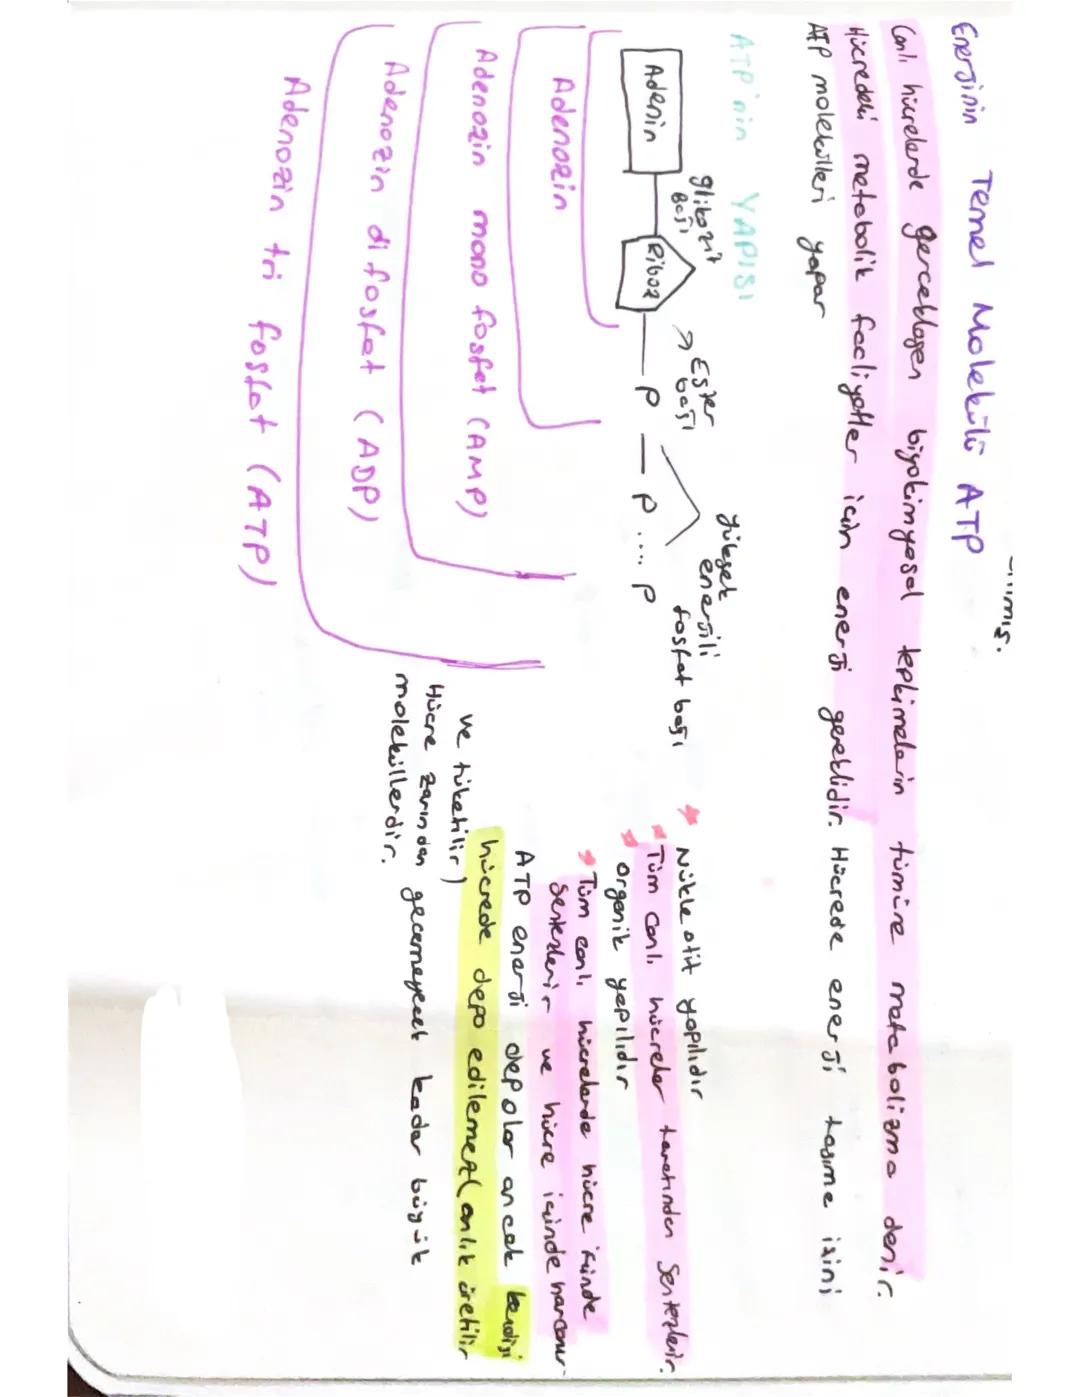 Enerjinin Temel Molekülü ATP
Canlı hücrelerde gerçekleşen biyokimyasal tepkimelerin tümüne metabolizma denir.
Hücredeki metabolik faaliyetler için enerji gereklidir. Hücrede enerji taşıma işini
ATP molekülleri yapar
ATP'nin YAPISI
glikozit
Bağı
Ester
bağı
yüksek
enerjili
fosfat bağı
Adenin
Riboz
P
P
P
Adenozin
Adenozin mono fosfat (AMP)
Adenozin di fosfat (ADP)
Adenozin tri fosfat (ATP)
Nükleotit yapılıdır
Tüm canlı hücreler tarafından sentezlenir.
organik yapılıdır
Tüm canlı hücrelerde hücre içinde
sentezlenir ve hücre içinde harcanır
ATP enerji depolar ancak kendisi
hücrede depo edilemez (anlık üretilir
ve tüketilir)
Hücre zarından geçemeyecek kadar büyük
moleküllerdir.